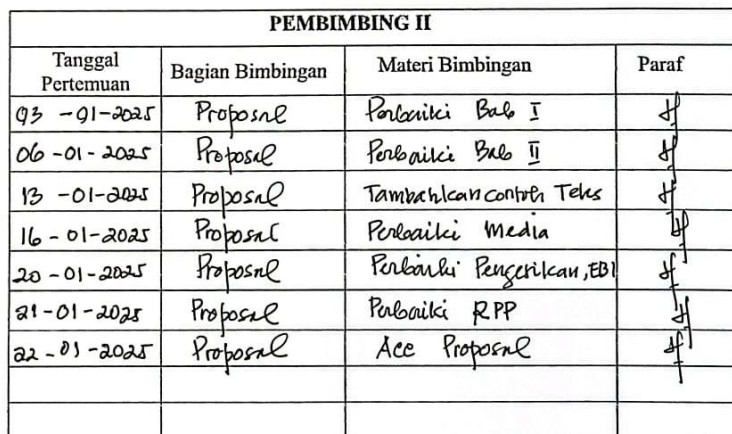 PEMBIMBING II
Tanggal Pertemuan Bagian Bimbingan Materi Bimbingan Paraf
03 -01-2025 Proposal Perbaiki Bab I
06 -01-2025 Proposal Perbaiki Bab II
13 -01-2025 Proposal Tambahkan contoh Teks
16 -01-2025 Proposal Perbaiki Media
20 -01-2025 Proposal Perbaiki Pengetikan, EBI
21-01-2025 Proposal Perbaiki RPP
22 -01-2025 Proposal Acc Proposal